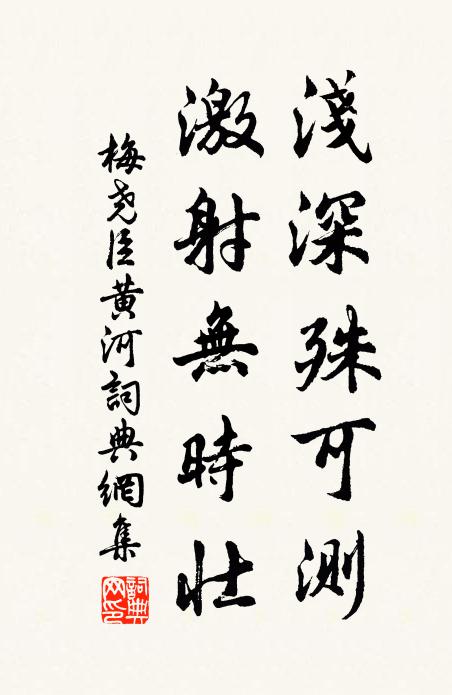 淺深殊可測
激射無時壯
梅堯臣黄河詞典網集
詞典网印